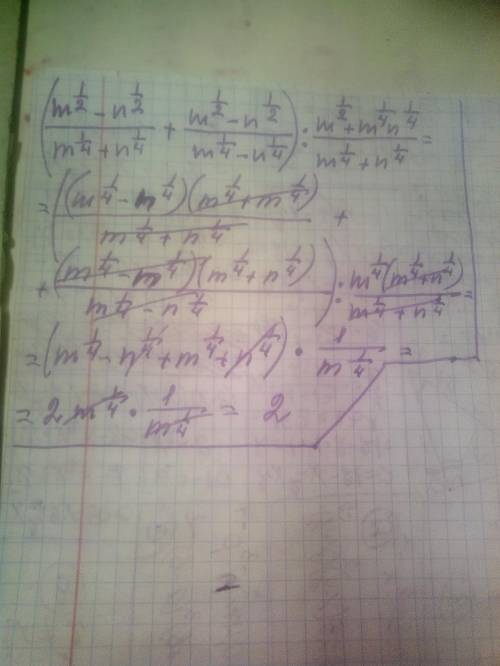 (\frac{m^{\frac{1}{2}} - n^{\frac{1}{2}}}{m^{\frac{1}{4}} + n^{\frac{1}{4}}} + \frac{m^{\frac{1}{2}} - n^{\frac{1}{2}}}{m^{\frac{1}{4}} - n^{\frac{1}{4}}}) : \frac{m^{\frac{1}{2}} + m^{\frac{1}{4}} n^{\frac{1}{4}}}{m^{\frac{1}{4}} + n^{\frac{1}{4}}} =
= (\frac{(m^{\frac{1}{4}} - m^{\frac{1}{4}})(m^{\frac{1}{4}} + m^{\frac{1}{4}})}{m^{\frac{1}{4}} + n^{\frac{1}{4}}} +
+ \frac{(m^{\frac{1}{4}} - m^{\frac{1}{4}})(m^{\frac{1}{4}} + n^{\frac{1}{4}})}{m^{\frac{1}{4}} - n^{\frac{1}{4}}}) : \frac{m^{\frac{1}{4}}(m^{\frac{1}{4}} + n^{\frac{1}{4}})}{m^{\frac{1}{4}} + n^{\frac{1}{4}}} =
= (m^{\frac{1}{4}} - n^{\frac{1}{4}} + m^{\frac{1}{4}} + n^{\frac{1}{4}}) \cdot \frac{1}{m^{\frac{1}{4}}} =
= 2 m^{\frac{1}{4}} \cdot \frac{1}{m^{\frac{1}{4}}} = 2